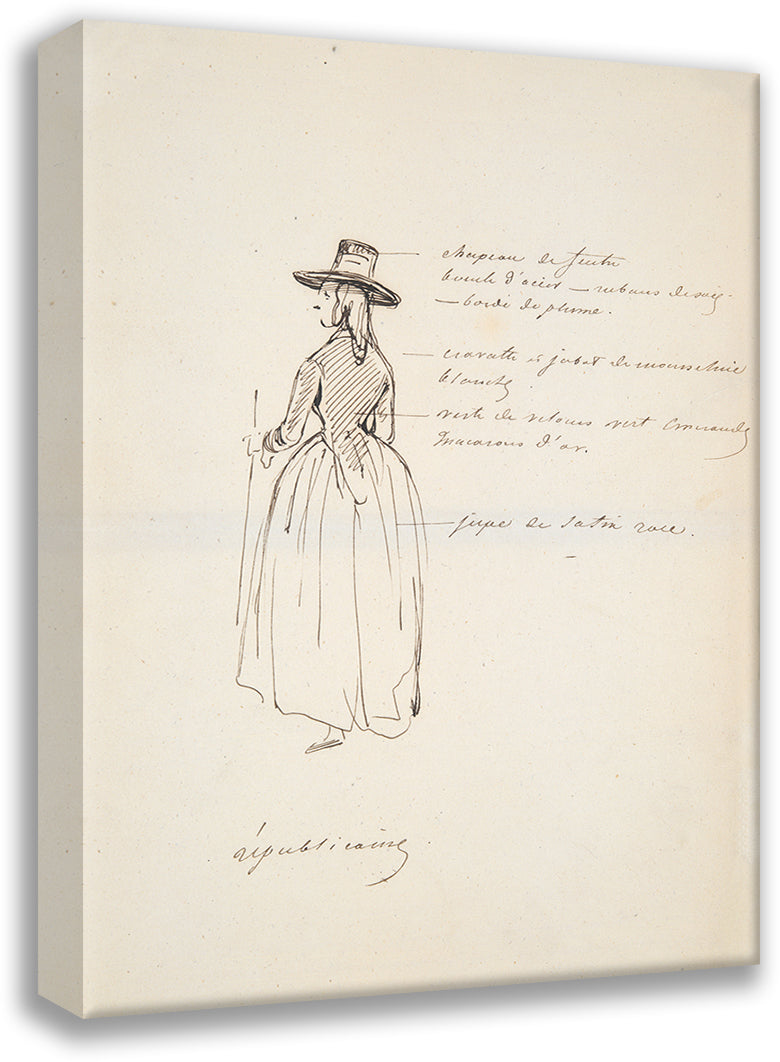 chapeau de feutre
boucle d'acier — rubans de soie.
— bordé de plume.
cravatte et jabot de mousseline
blanche
veste de velours vert émeraude
macarons d'or.
jupe de satin rose.
républicaine.